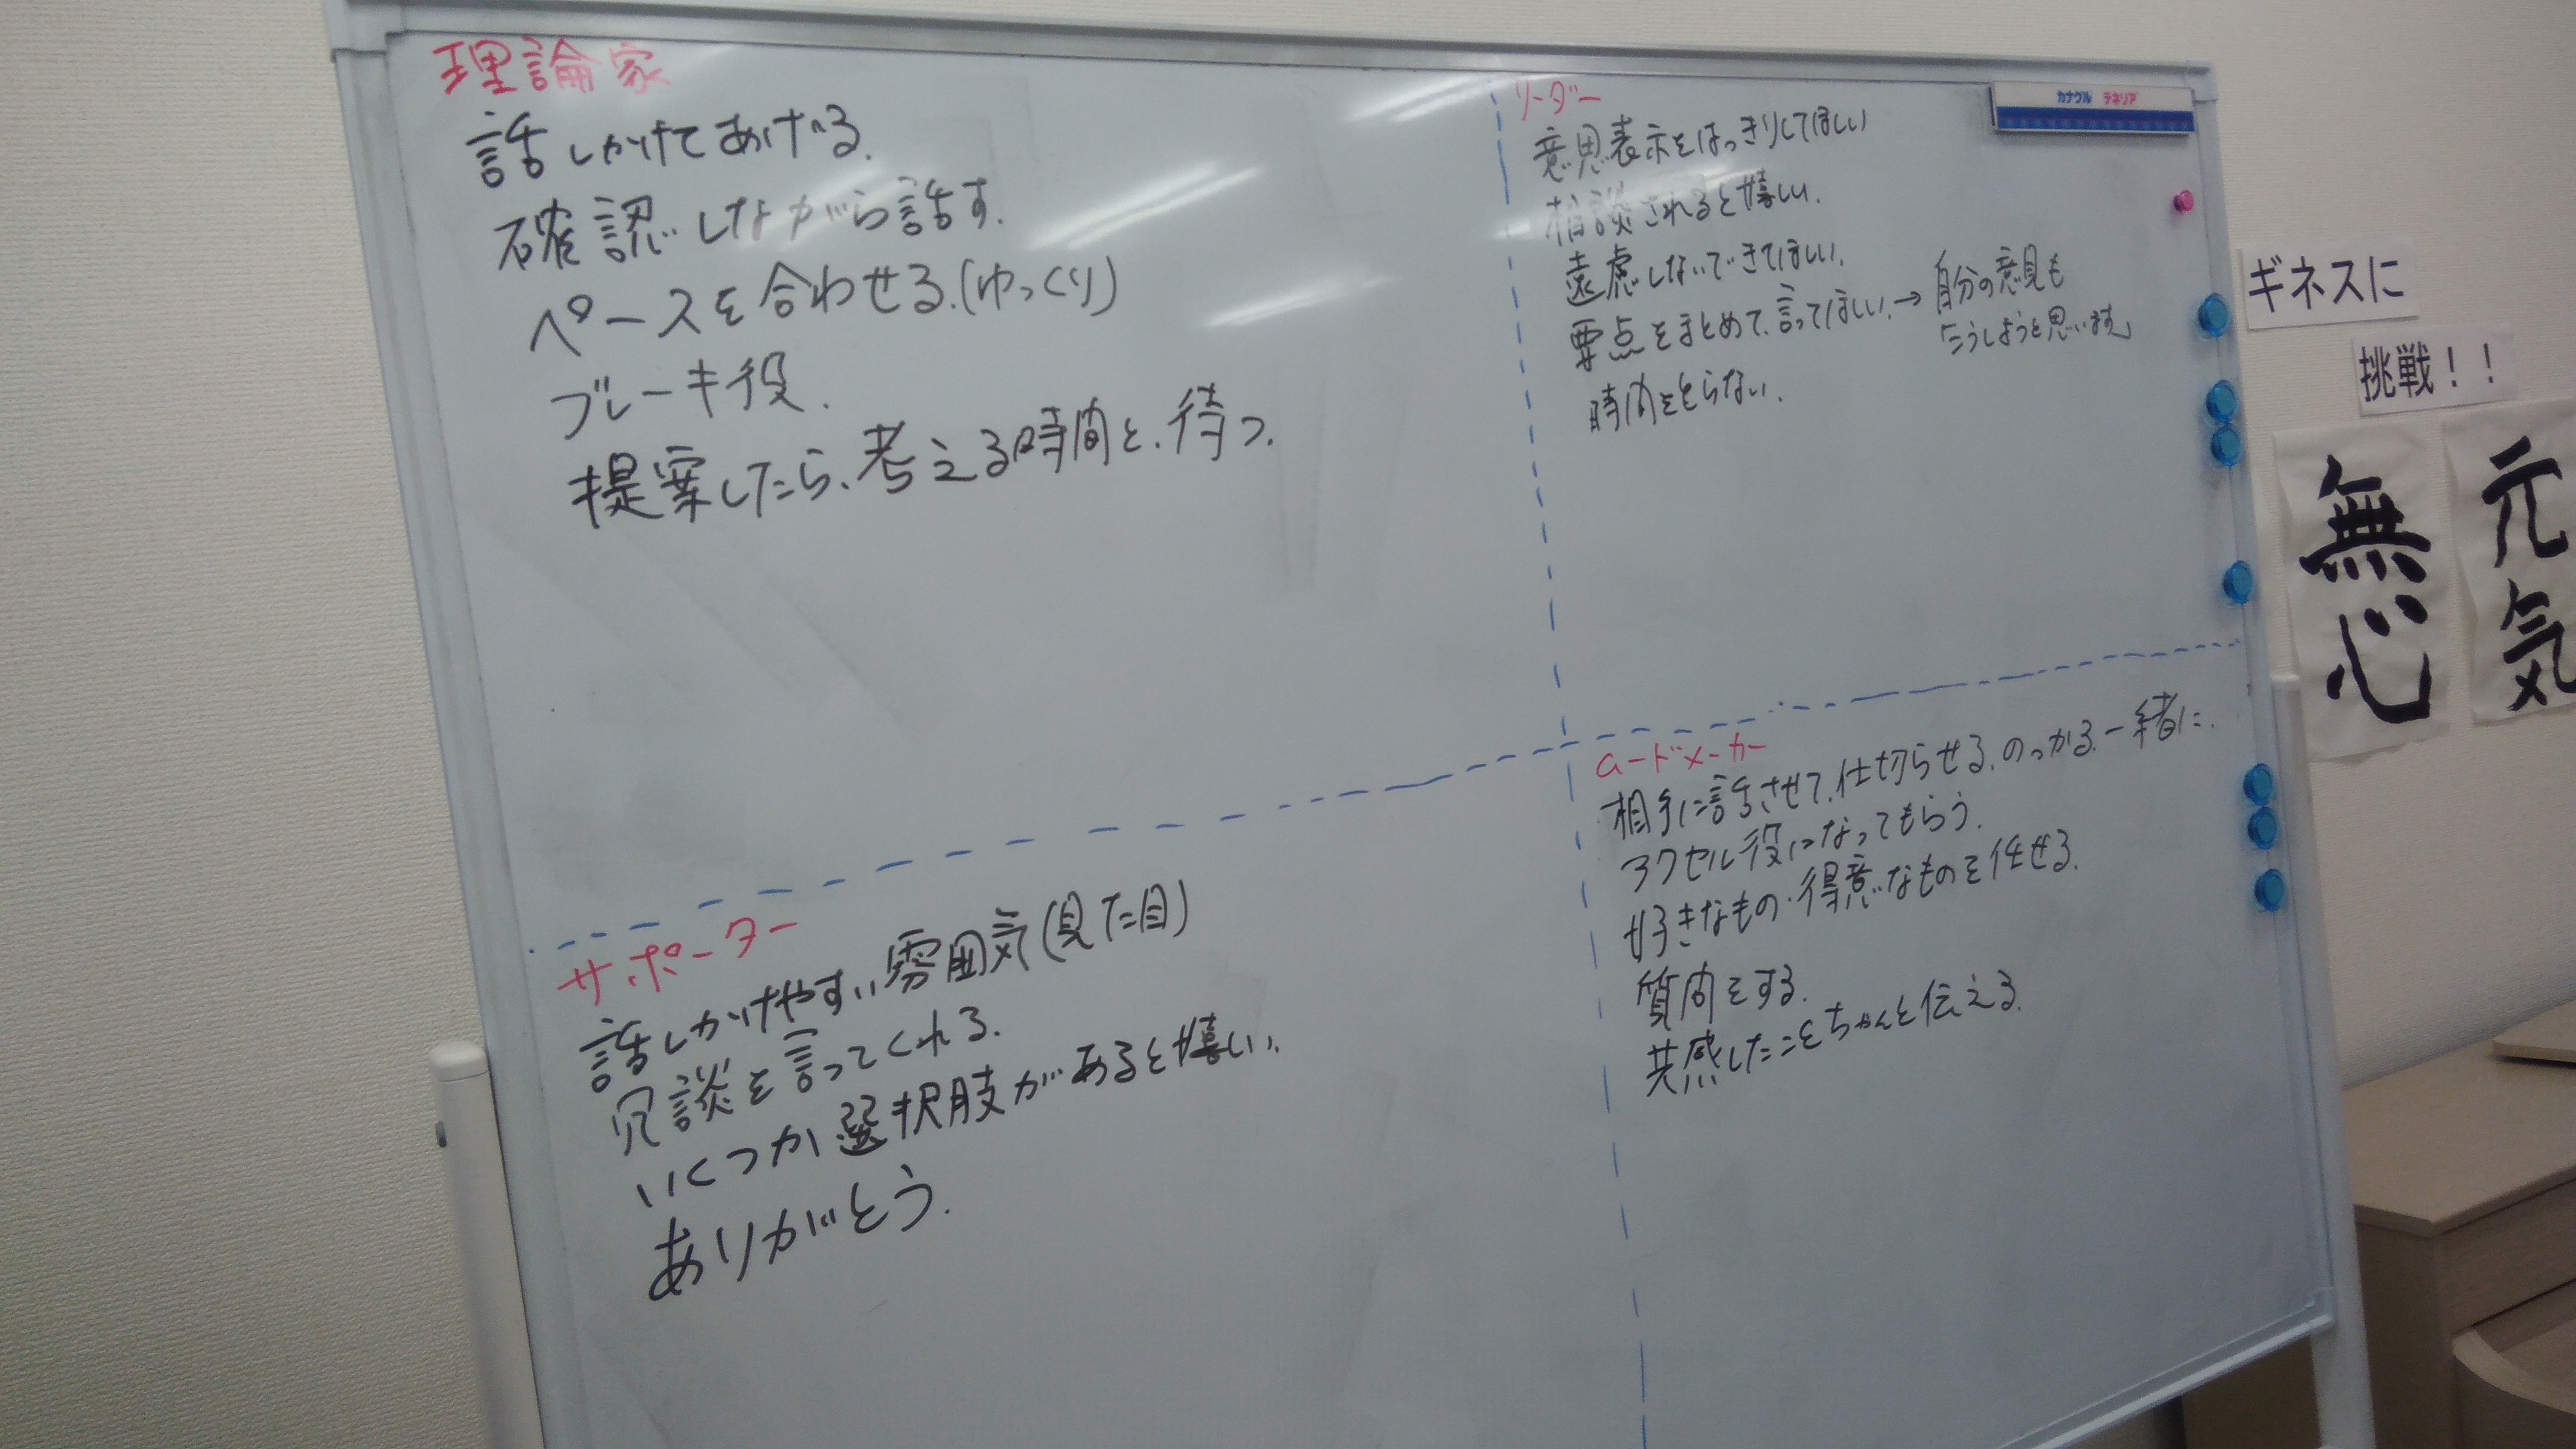 理論家
話しかけてあげる.
確認しながら話す.
ペースを合わせる.(ゆっくり)
ブレーキ役.
提案したら、考える時間と、待つ.
リーダー
意思表示をはっきりしてほしい
相談されると嬉しい.
遠慮しないできてほしい.
要点をまとめて、言ってほしい.→自分の意見も
「こうしようと思います」
時間をとらない.
サポーター
話しかけやすい雰囲気(見た目)
冗談を言ってくれる.
いくつか選択肢があると嬉しい.
ありがとう.
ムードメーカー
相手に話させて、仕切らせる、のっかる 一緒に.
アクセル役になってもらう.
好きなもの・得意なものを任せる.
質問をする.
共感したことをちゃんと伝える.
ギネスに
挑戦!!
無心
元気